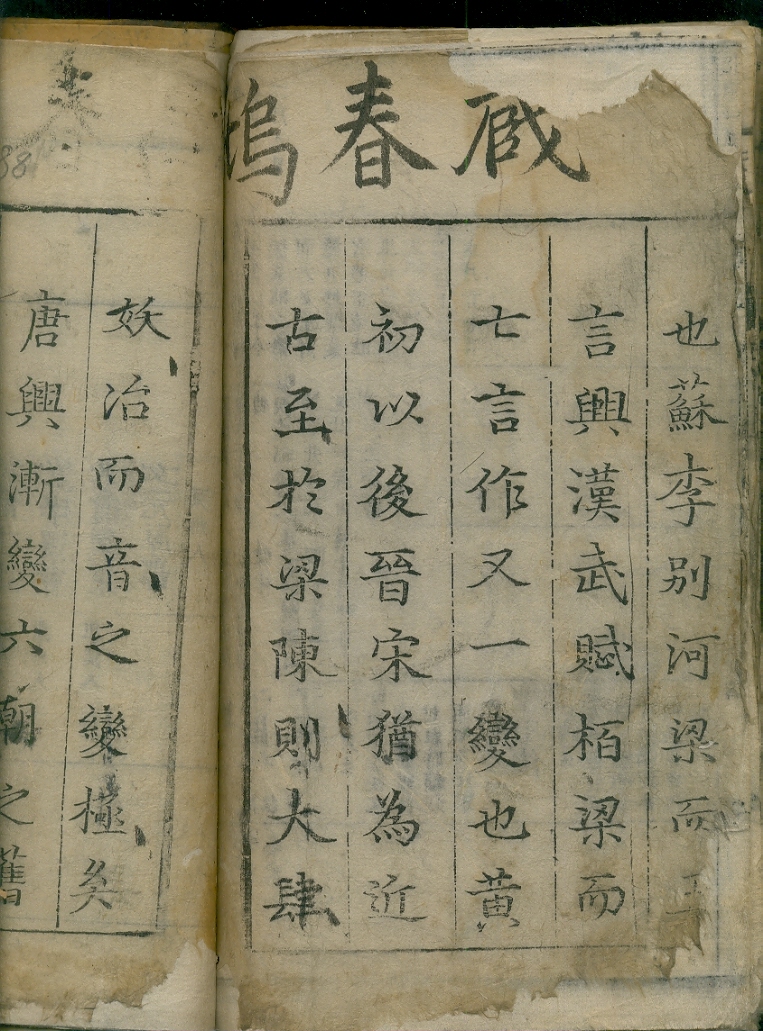 藏春塢
也蘇李別河梁而五
言興漢武賦栢梁而
七言作又一變也黃
初以後晉宋猶為近
古至於梁陳則大肆
妖冶而音之變極矣
唐興漸變六朝之舊